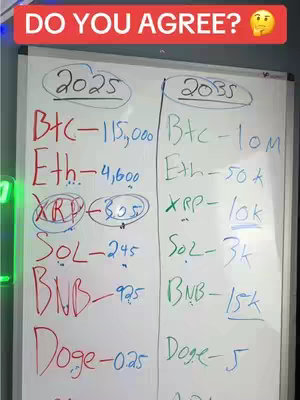 DO YOU AGREE? 🤔
2025 2035
Btc - 115,000 Btc - 10M
Eth - 4,600 Eth - 50k
XRP - 3.05 XRP - 10k
SOL - 245 SOL - 3k
BNB - 925 BNB - 15k
Doge - 0.25 Doge - 5